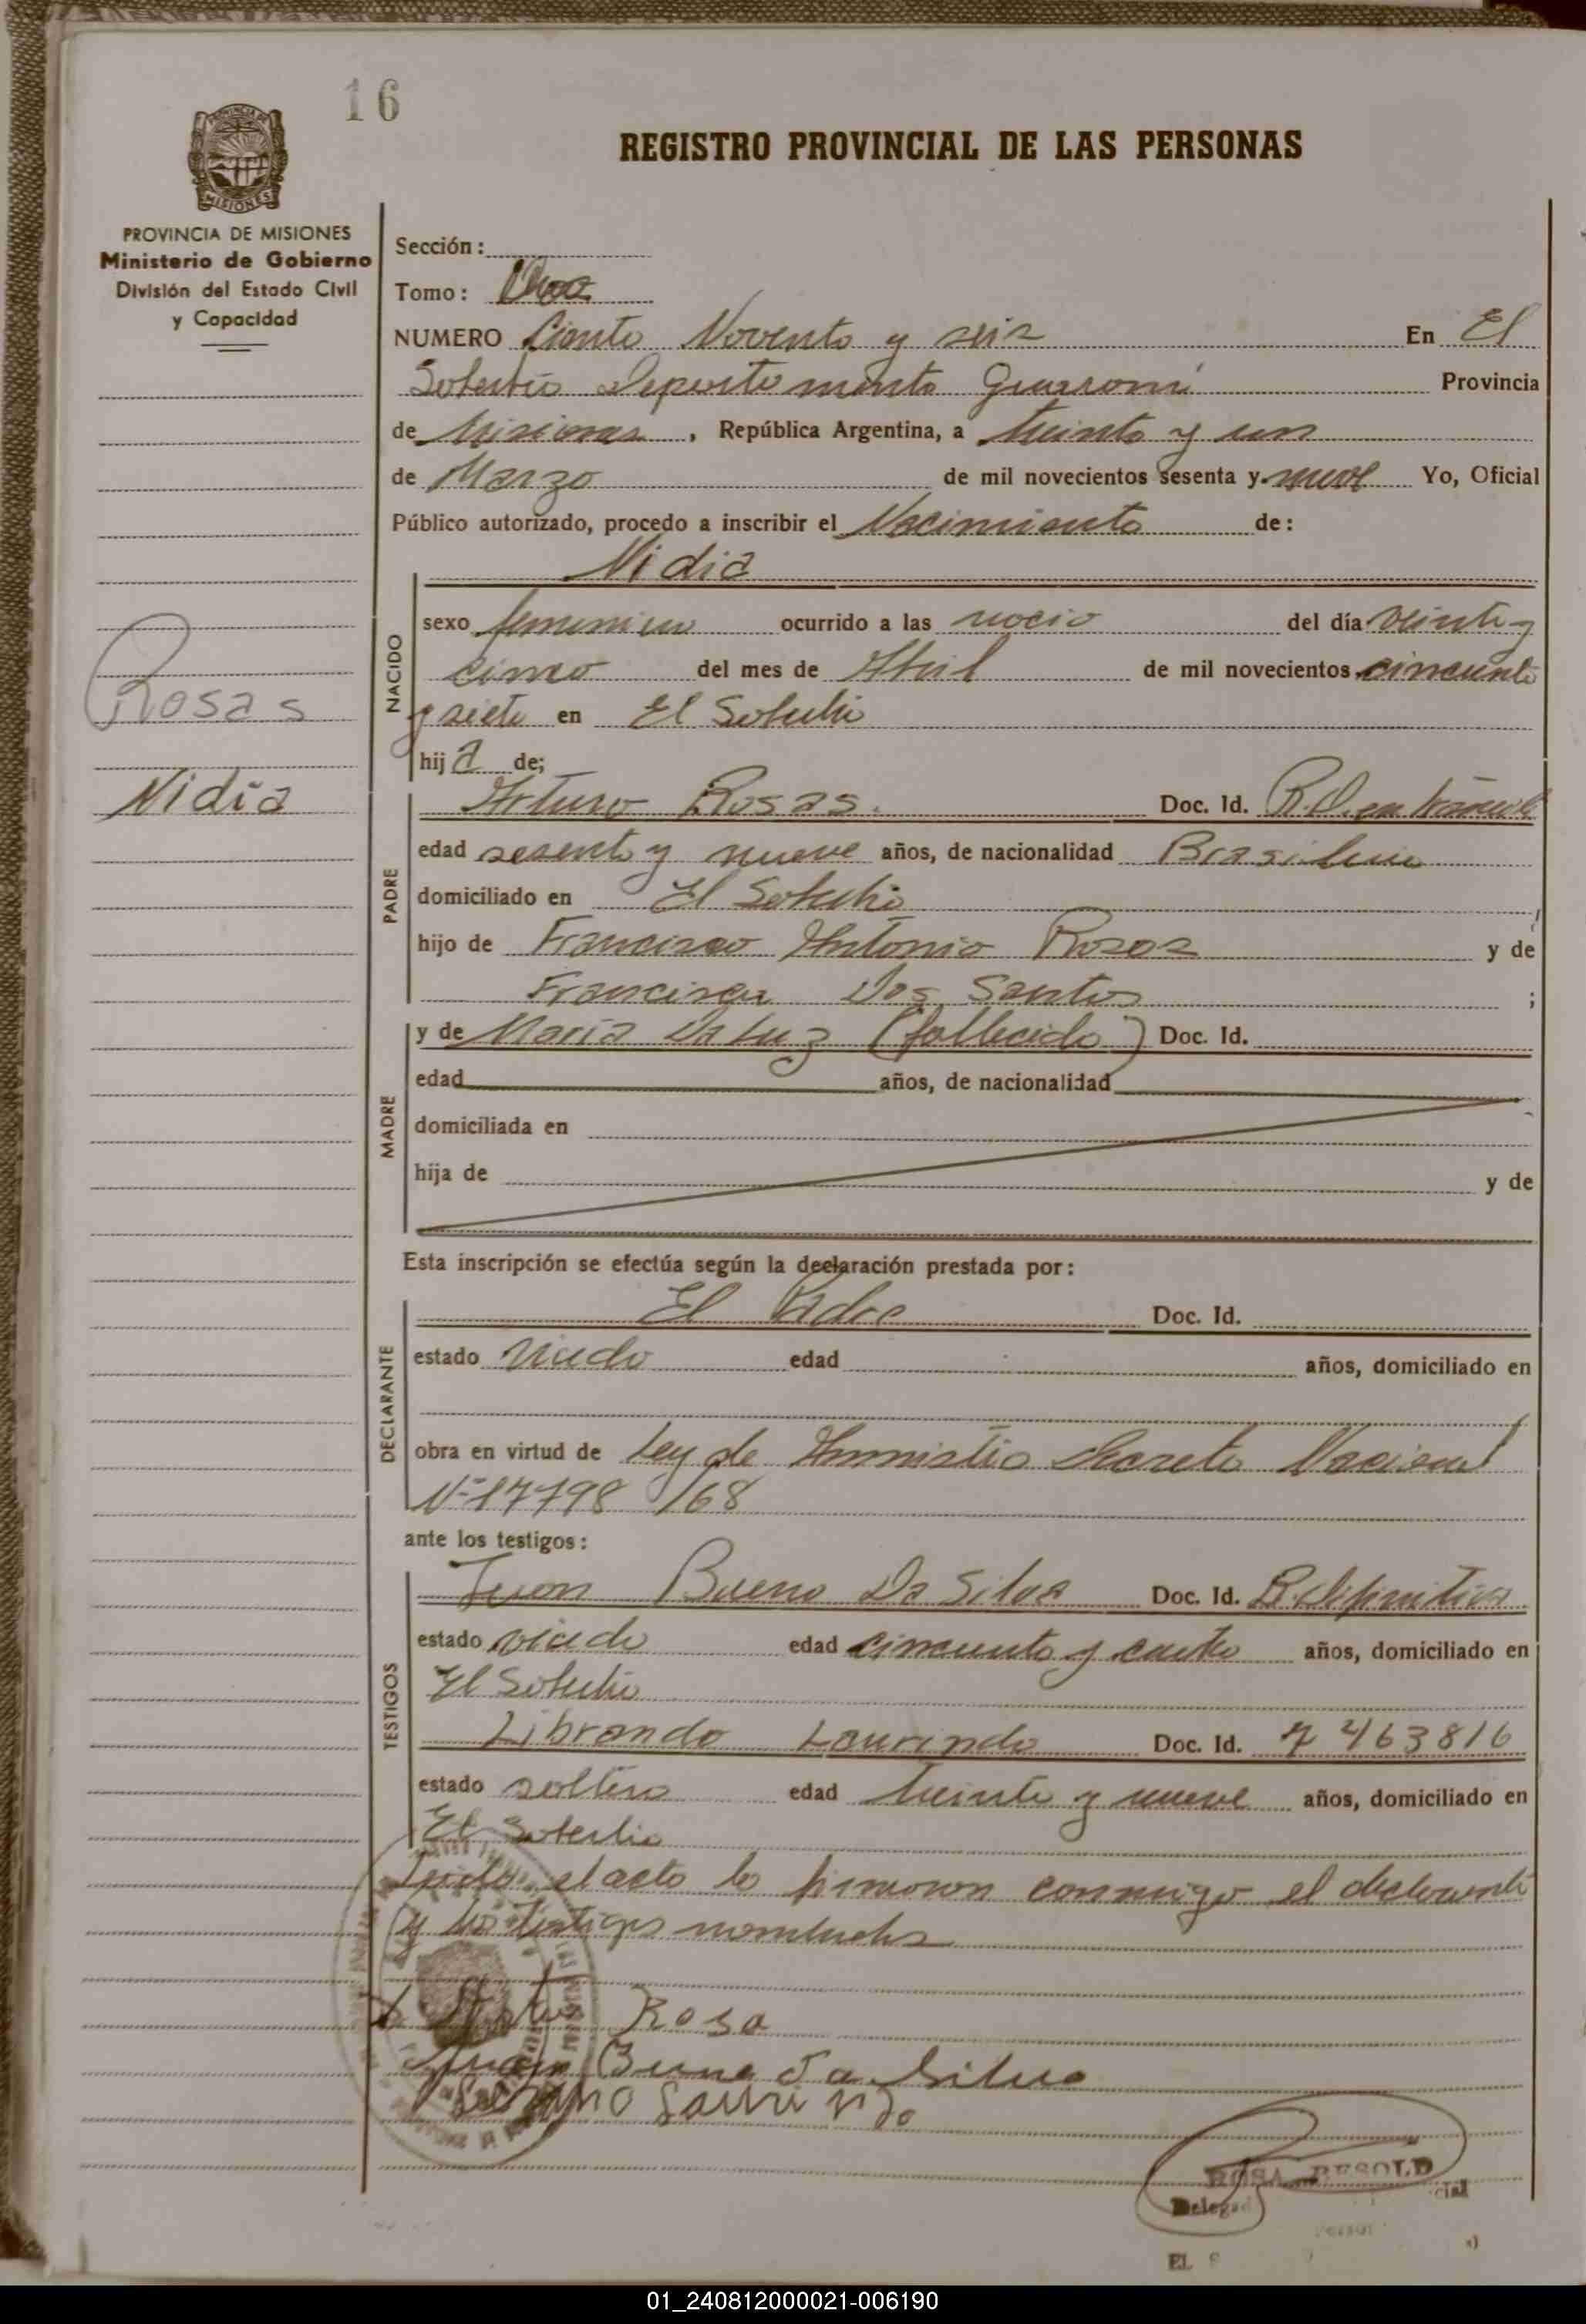 16
REGISTRO PROVINCIAL DE LAS PERSONAS
PROVINCIA DE MISIONES
Ministerio de Gobierno
División del Estado Civil
y Capacidad
Sección:
Tomo:
NUMERO Ciento Noventa y seis En El
Soberbio Departamento Guaraní Provincia
de Misiones, República Argentina, a treinta y un
de Marzo de mil novecientos sesenta y nueve Yo, Oficial
Público autorizado, procedo a inscribir el Nacimiento de:
Nidia
NACIDO
sexo femenino ocurrido a las del día veinte y
cinco del mes de Abril de mil novecientos cincuenta
y siete en El Soberbio
hija de;
Rosas
Nidia
PADRE
Arturo Rosas. Doc. Id. R.D. en trámite
edad sesenta y nueve años, de nacionalidad Brasilera
domiciliado en El Soberbio
hijo de Francisco Antonio Rosas y de
Francisca Dos Santos ;
MADRE
y de María Da Luz (fallecida) Doc. Id.
edad años, de nacionalidad
domiciliada en
hija de y de
Esta inscripción se efectúa según la declaración prestada por:
DECLARANTE
El Padre Doc. Id.
estado viudo edad años, domiciliado en
obra en virtud de Ley de Amnistia Decreto Nacional
Nº 17798/68
ante los testigos:
TESTIGOS
Juan Bueno Da Silva Doc. Id. R. definitiva
estado viudo edad cincuenta y cuatro años, domiciliado en
El Soberbio
Librando Laurindo Doc. Id. 7 463816
estado soltero edad treinta y nueve años, domiciliado en
El Soberbio
Leido el acto lo firmaron conmigo el declarante
y los testigos nombrados
Rosa
Juan Buena da Silva
Laurindo
ROSA BESOLD
Delegad
01_240812000021-006190